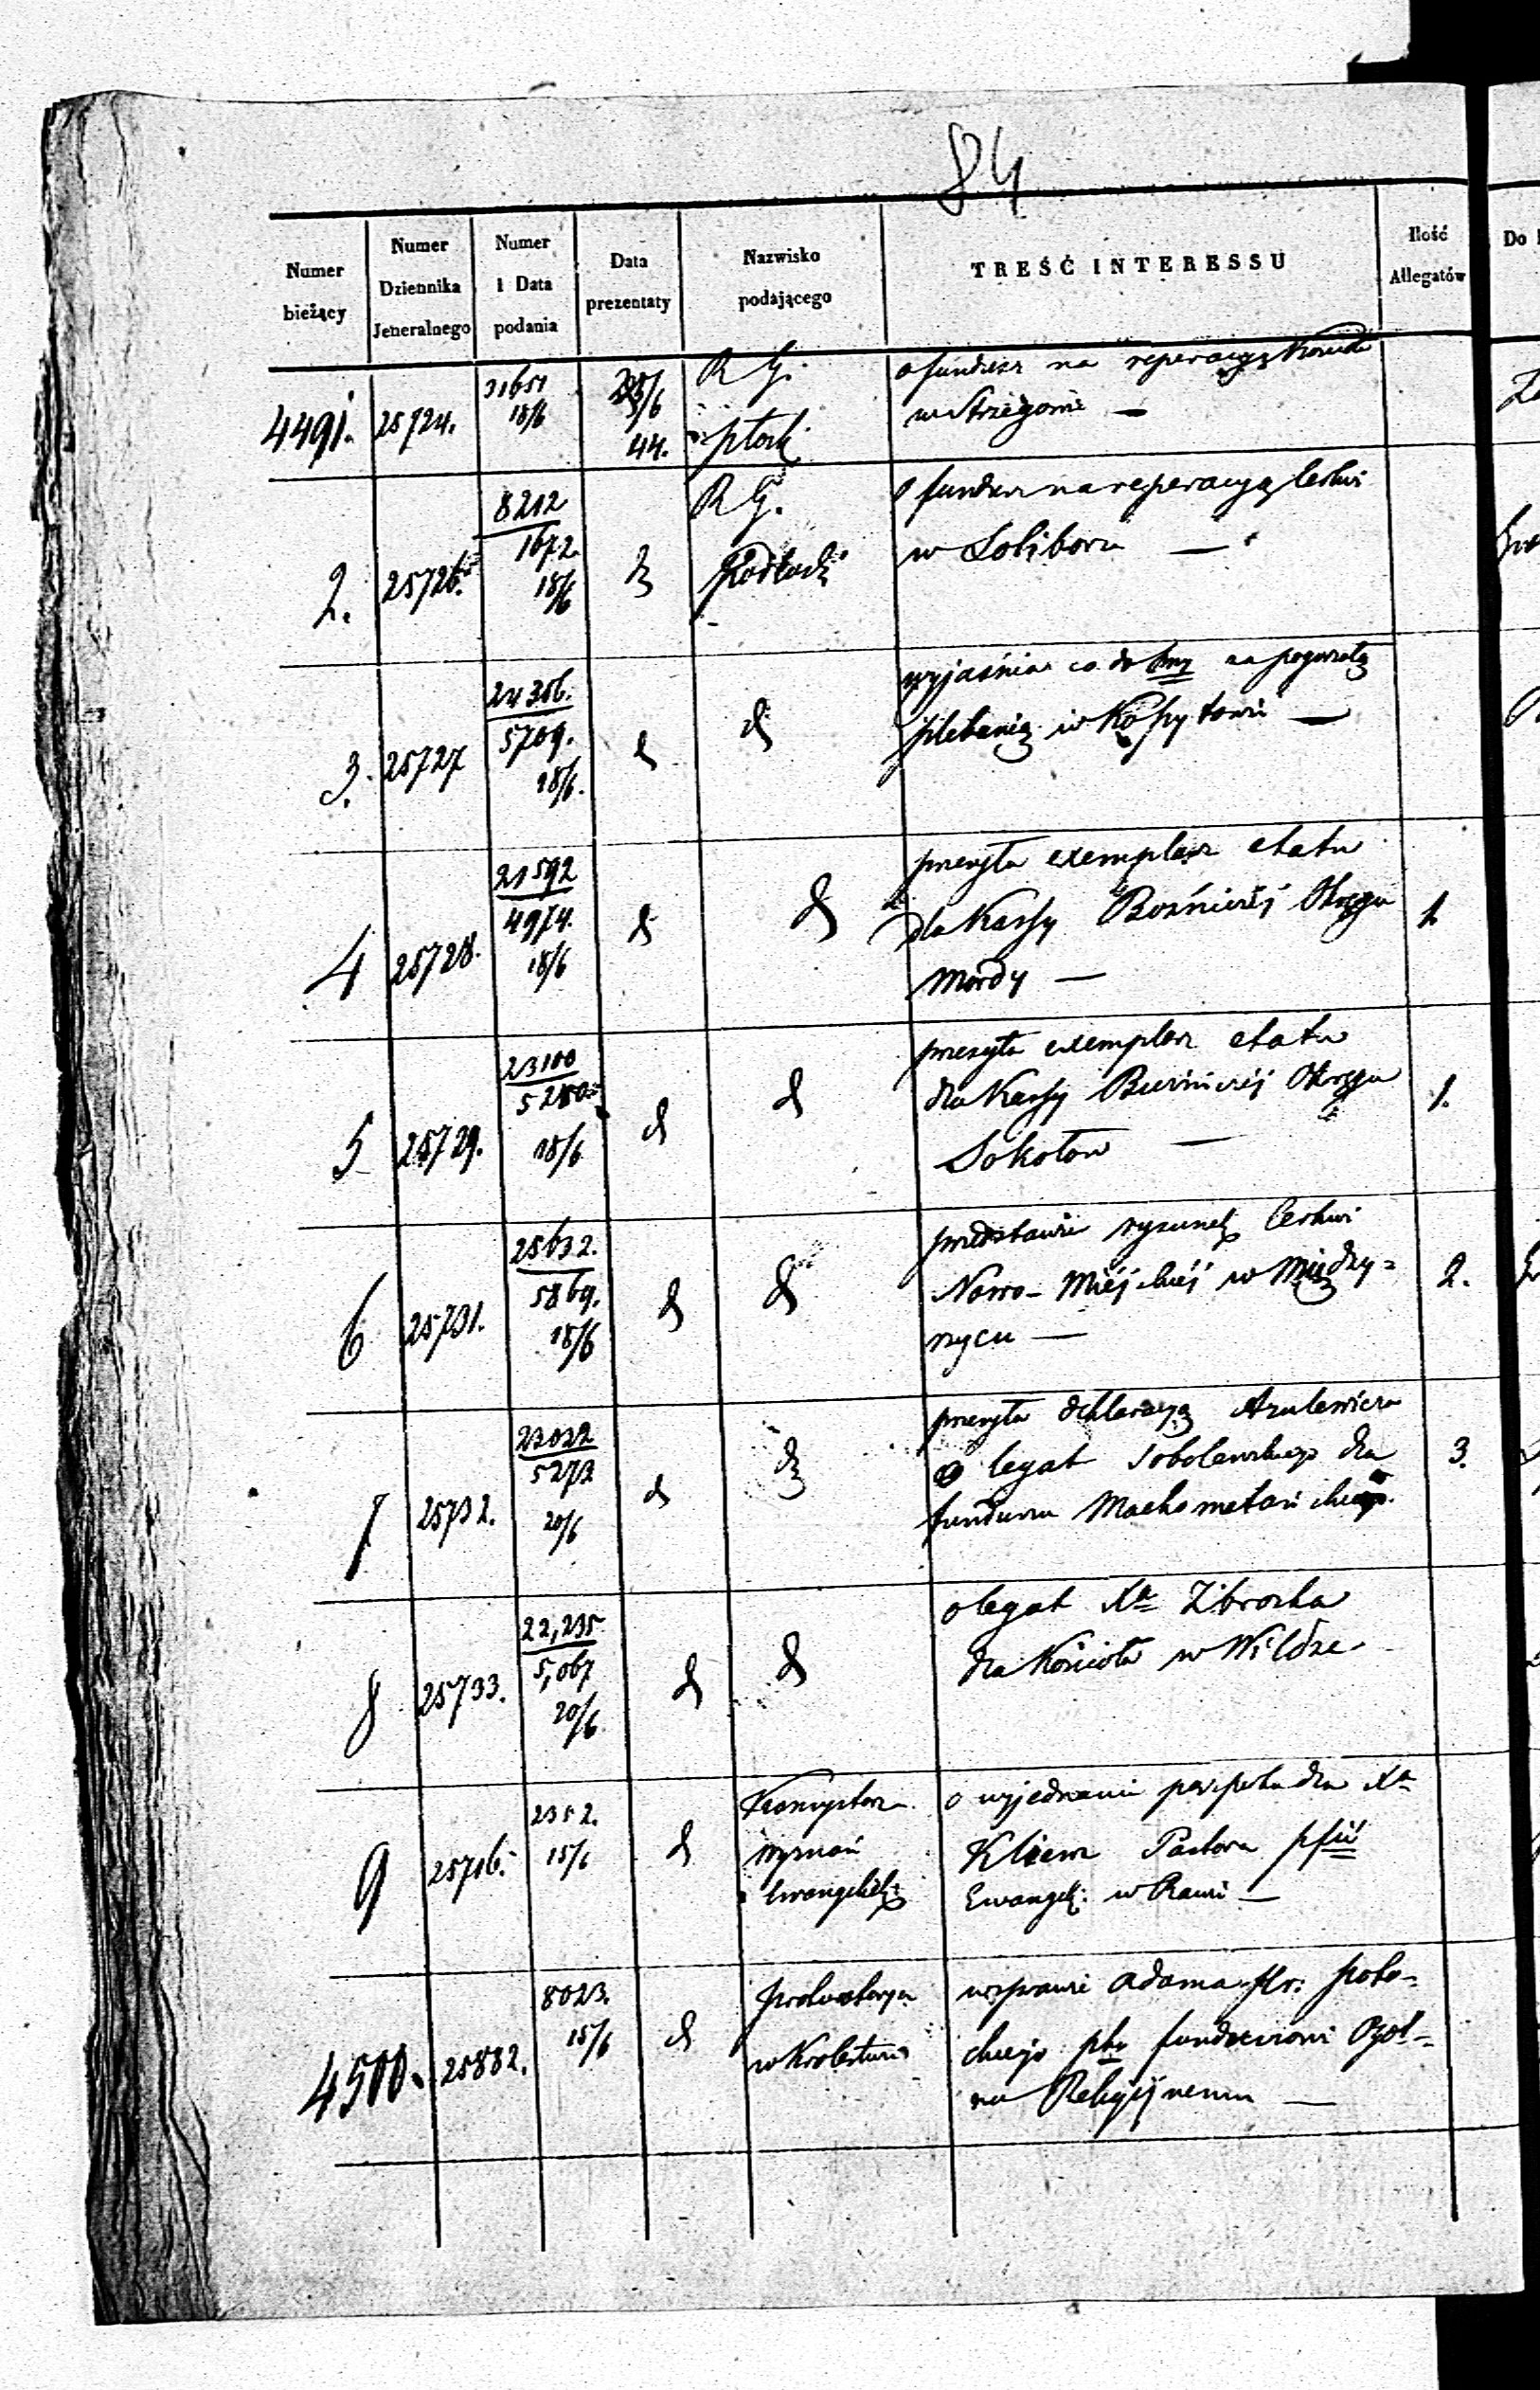 84
Numer bieżący
Numer Dziennika Jeneralnego
Numer i Data podania
Data prezentaty
Nazwisko podającego
TREŚĆ INTERESSU
Ilość Allegatów
Do
4491. 25724. 31651 18/6 44. R G. płock o fundusz na reperacyą Kościoła
w Strzegomie —
2. 25726. 8212 1672. 18/6 R G. Podlaski o fundusz na reperacyą Cerkwi
w Sobiborze —
3. 25727 24356. 5709. 18/6. d d wyjaśnia co do za pogorzałą
plebanią w Kopytowie —
4 25728. 21592 4974. 18/6 d d przesyła exemplarz etatu 1.
dla Kassy Bożniczéj Okręgu
Mordy —
5 25729. 23100 5280 18/6 d d przesyła exemplarz etatu 1.
dla Kassy Bożniczéj Okręgu
Sokołow —
6 25731. 25632. 5869. 18/6 d d przedstawia rysunek Cerkwi 2.
Nowo-Miejskiéj w Między=
rzycu —
7 25732. 23032 5273 20/6 d d przesyła deklaracyą Azulewicza 3.
o legat Sobolewskiego dla
funduszu Machometańskiego.
8 25733. 22,235 5,067 20/6 d d o legat Xa Zbroszka
dla Kościoła w Wildze
9 25716. 2352. 15/6 d Konsystorz wyznań Ewangelick: o wyjednanie paszportu dla Xa
Pastora
Ewangel: w Rawie —
4500. 25882. 8023. 15/6 d Prokuratorya w Królestwie w sprawie Adama hr: Poto-
ckiego funduszowi Ogól-
no Religijnemu —